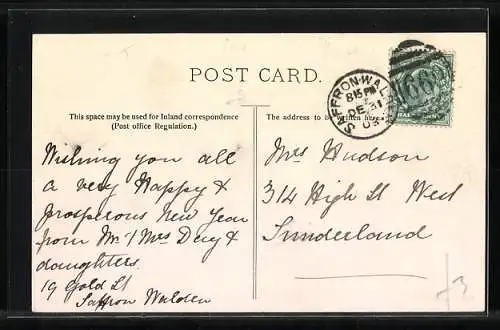 POST CARD.
This space may be used for Inland correspondence
(Post office Regulation.)
The address to be written here.
SAFFRON-WAL
8 15 PM
DE 31
03
668
Wishing you all
a very Happy &
prosperous New Year
from Mr & Mrs Day &
daughters.
19 Gold St
Saffron Walden
Mrs Hudson
314 High St West
Sunderland